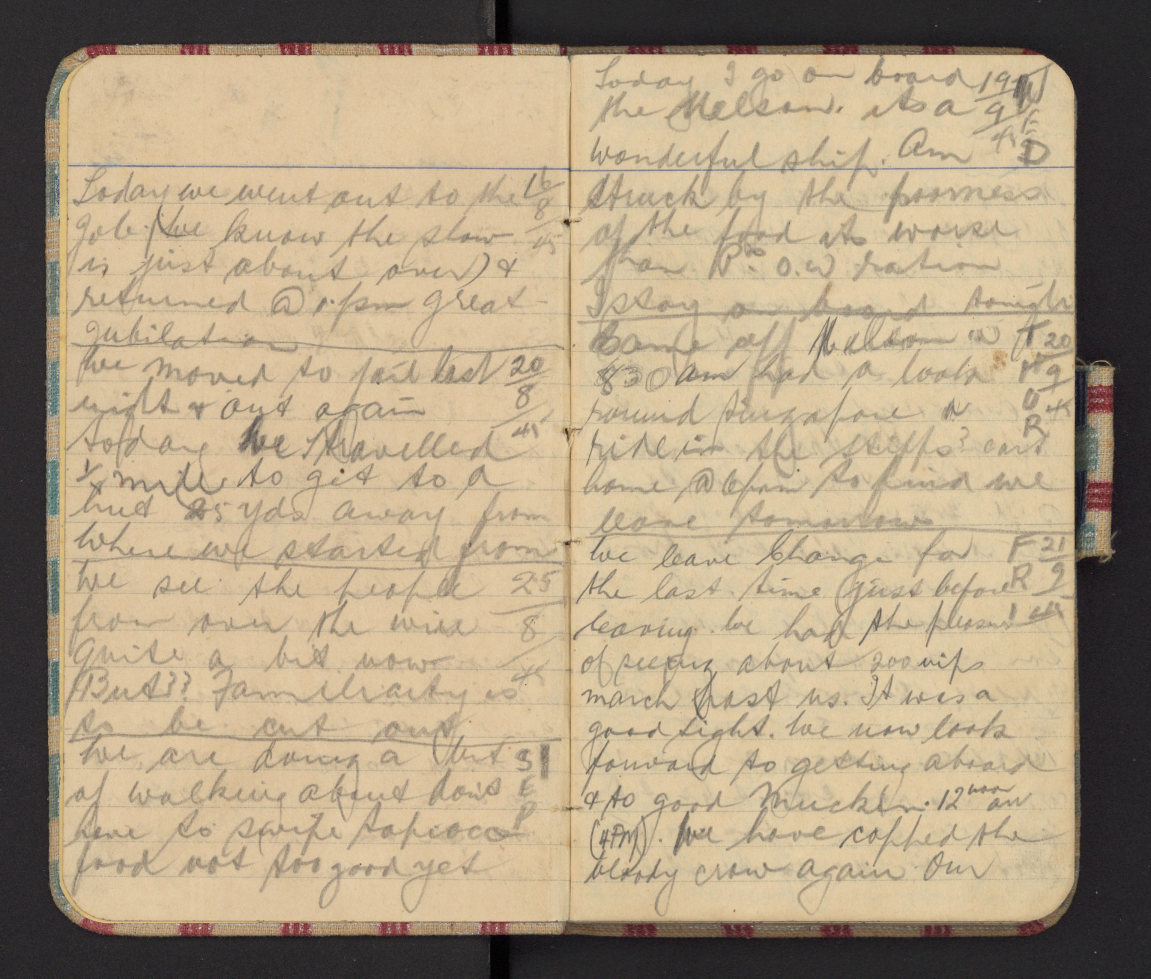 Today we went out to the 16/8/45
Gobe. (We know the show
is just about over) &
returned @ 1.pm great
jubilation
We moved to jail last 20/8/45
night & out again
today We travelled
mile to get to a
hut 25 yds away from
where we started from
We see the people 25/8/45
from over the wire
quite a bit now
But?? Familiraity is
to be cut out
We are doing a bit 1
of walking about dont SEP
have to swipe tapioca
food not too good yet
Today I go on board 19/9/45 WED
the Nelson. its a
wonderful ship. Am
struck by the poorness
of the food its worse
than P. O.W ration
I stay on board tonight
Came off Nelson @ THUR 20/9/45
830 am had a look
round Singapore &
ride in the cars
home @ 6pm to find we
leave tomorrow
We leave Changi for FRI 21/9/45
the last time (just before
leaving. We had the pleasure
of seeing about 200 nips
march past us. It was a
good sight. We now look
forward to getting aboard
& to good Mucken. 12 noon
(4PM). We have copped the
bloody crow again. Our